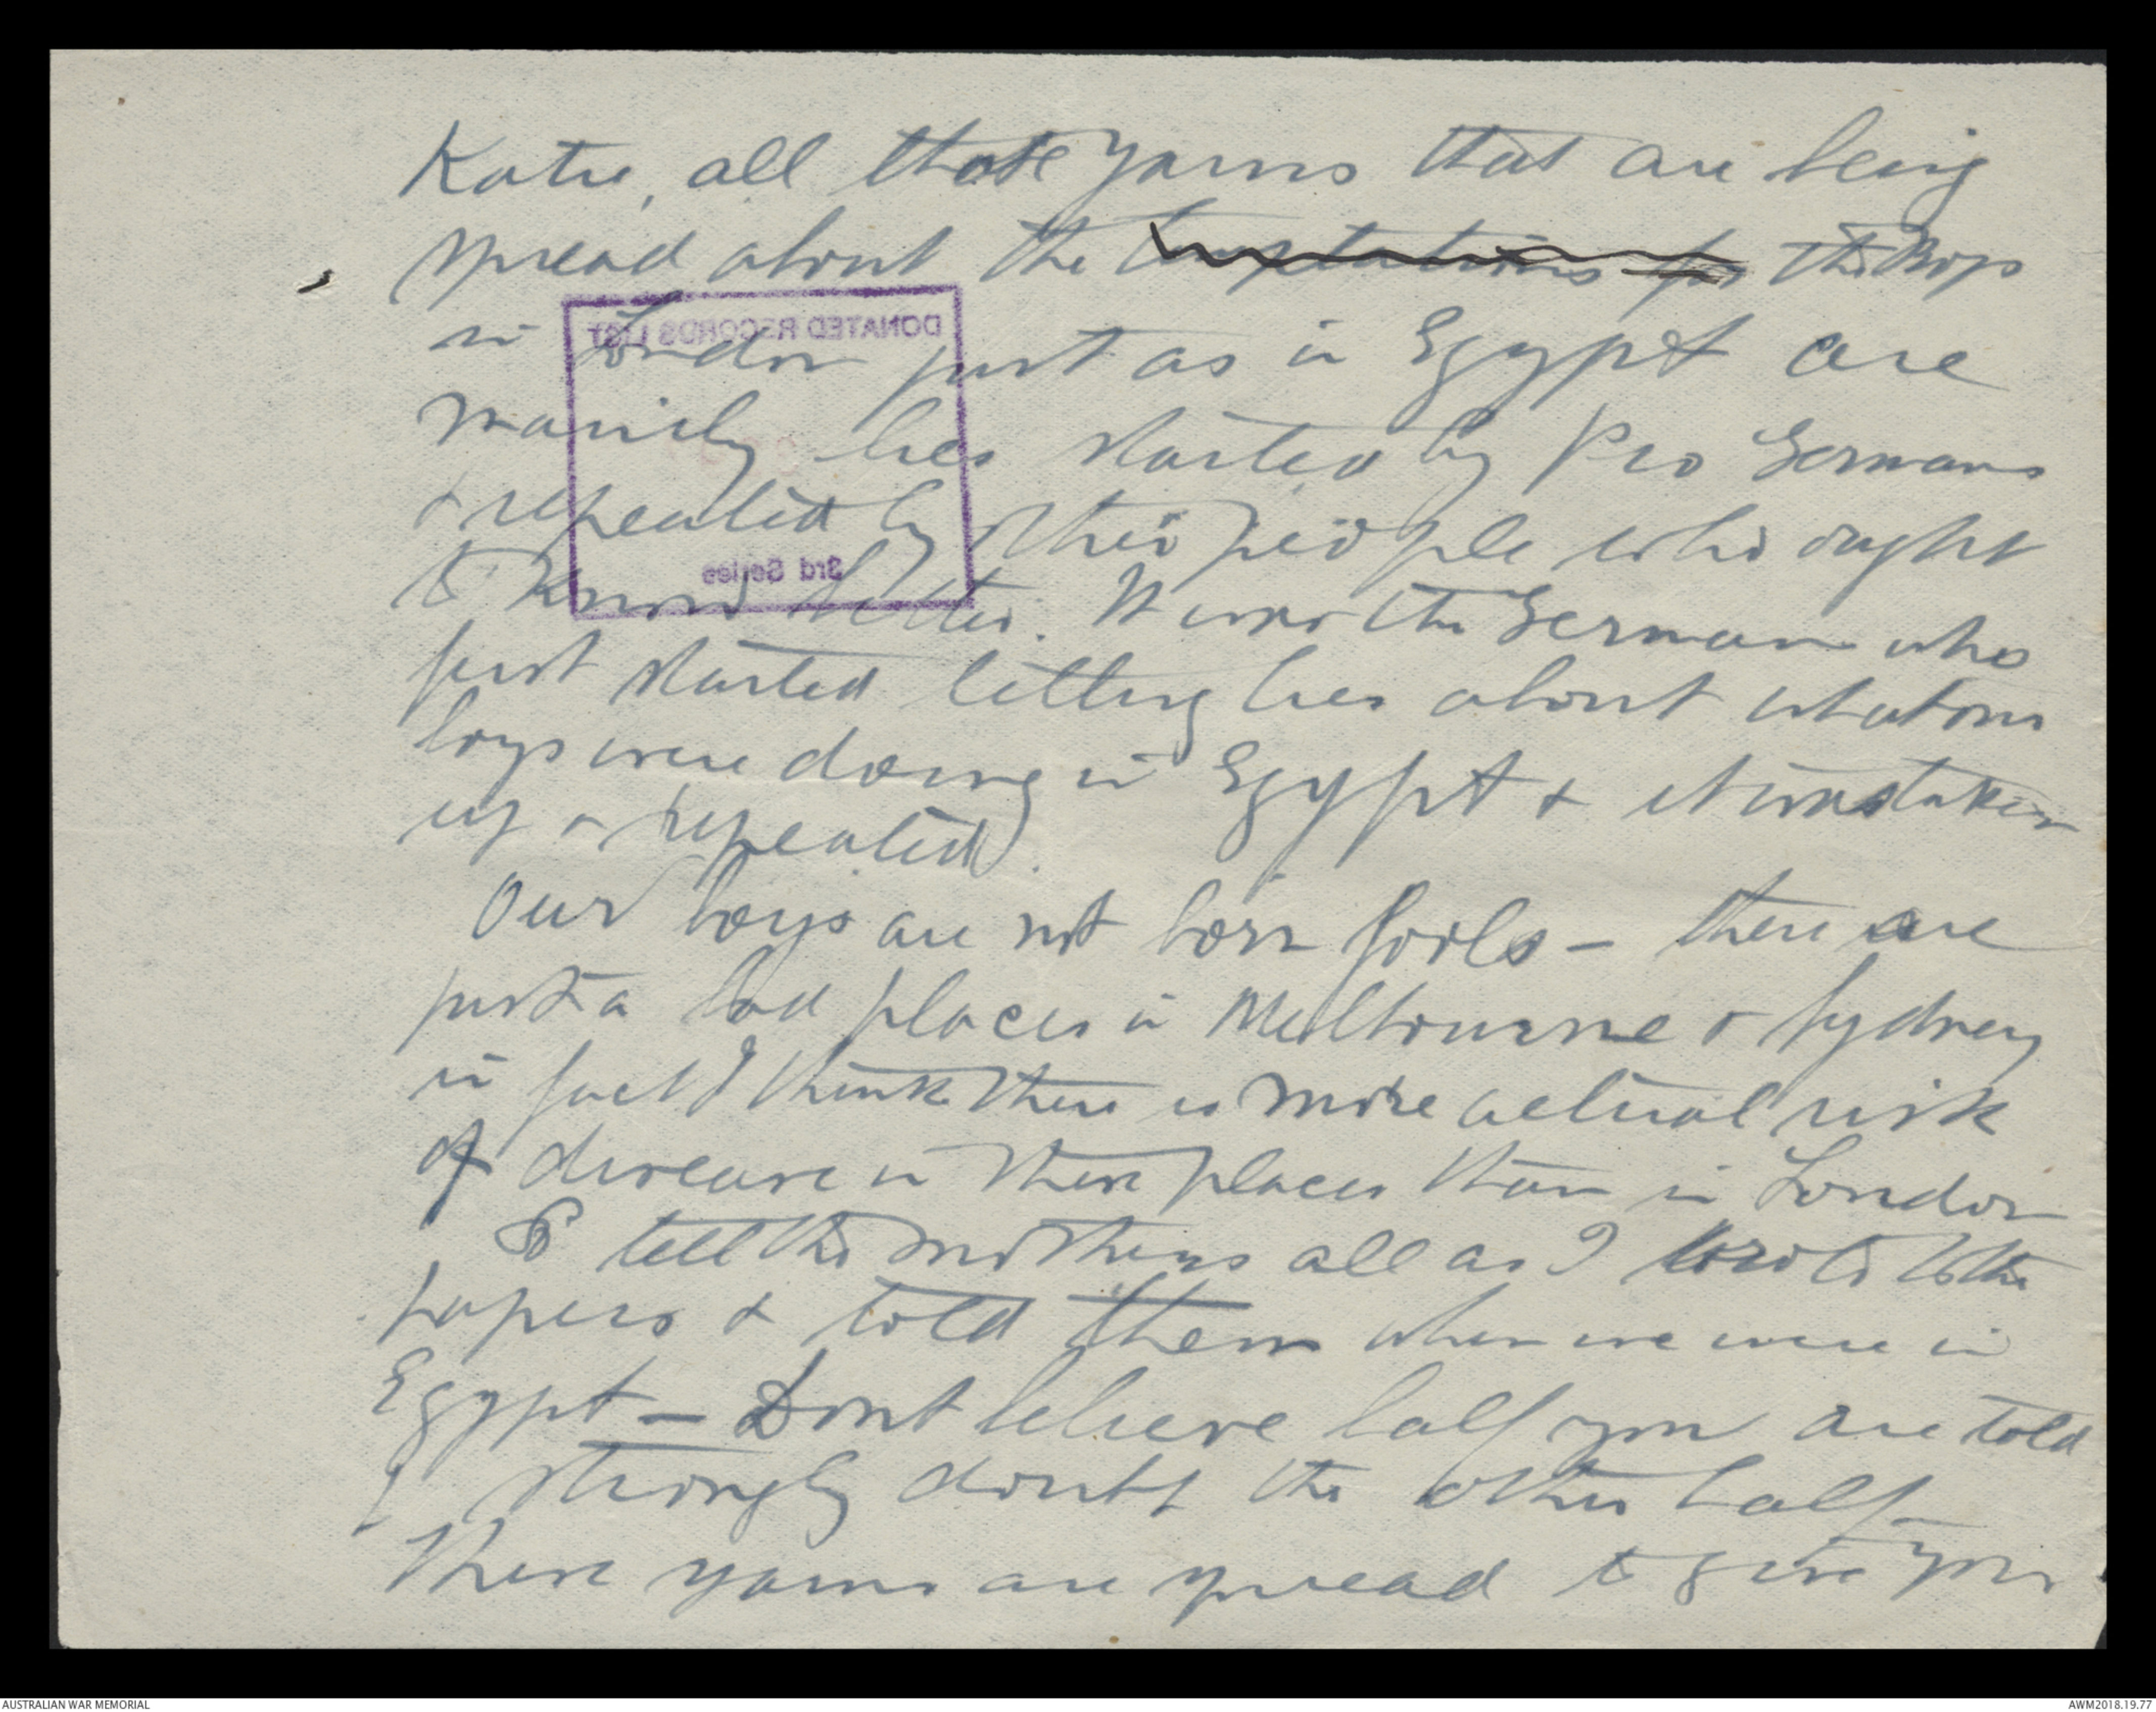 Katie, all those yarns that are being
spread about the temptations for the Boys
in London just as in Egypt are
mainly lies started by Pro Germans
& repeated by other people who ought
to know better. It was the German who
first started telling lies about what our
boys were doing in Egypt & it was taken
up & repeated.
Our boys are not born fools — there are
just as bad places in Melbourne & Sydney
in fact I think there is more actual risk
of disease in these places than in London
So tell the mothers all as I wrote to the
papers & told them when we were in
Egypt — Dont believe half you are told
& strongly doubt the other half
These yarns are spread to give you
DONATED RECORDS LIST
3rd Series
AUSTRALIAN WAR MEMORIAL
AWM2018.19.77